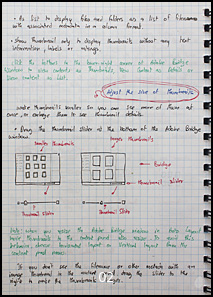 As list to display files and folders as a list of filenames
with associated metadata in a column format.
Show thumbnail only to display thumbnails without any text
information, labels or ratings.
Use the buttons in the bottom-right corner of Adobe Bridge
window to view contents as thumbnails, view content as detail or
view content as list.
Adjust the size of thumbnails
make thumbnails smaller so you can see more of them at
once, or enlarge them to see thumbnail details.
Drag the thumbnail slider at the bottom of the Adobe Bridge
window.
Smaller thumbnails
larger thumbnails
Bridge
thumbnail slider
Thumbnail Slider
Thumbnail Slider
Note: when you resize the Adobe Bridge window in
thumbnails in the content panel also resize. To avoid this
behavior, choose horizontal layout or vertical layout from the
content panel menu.
If you don't see the filename or other metadata with an
image thumbnail in the content panel, drag the slider to the
right to make the thumbnails larger.
02